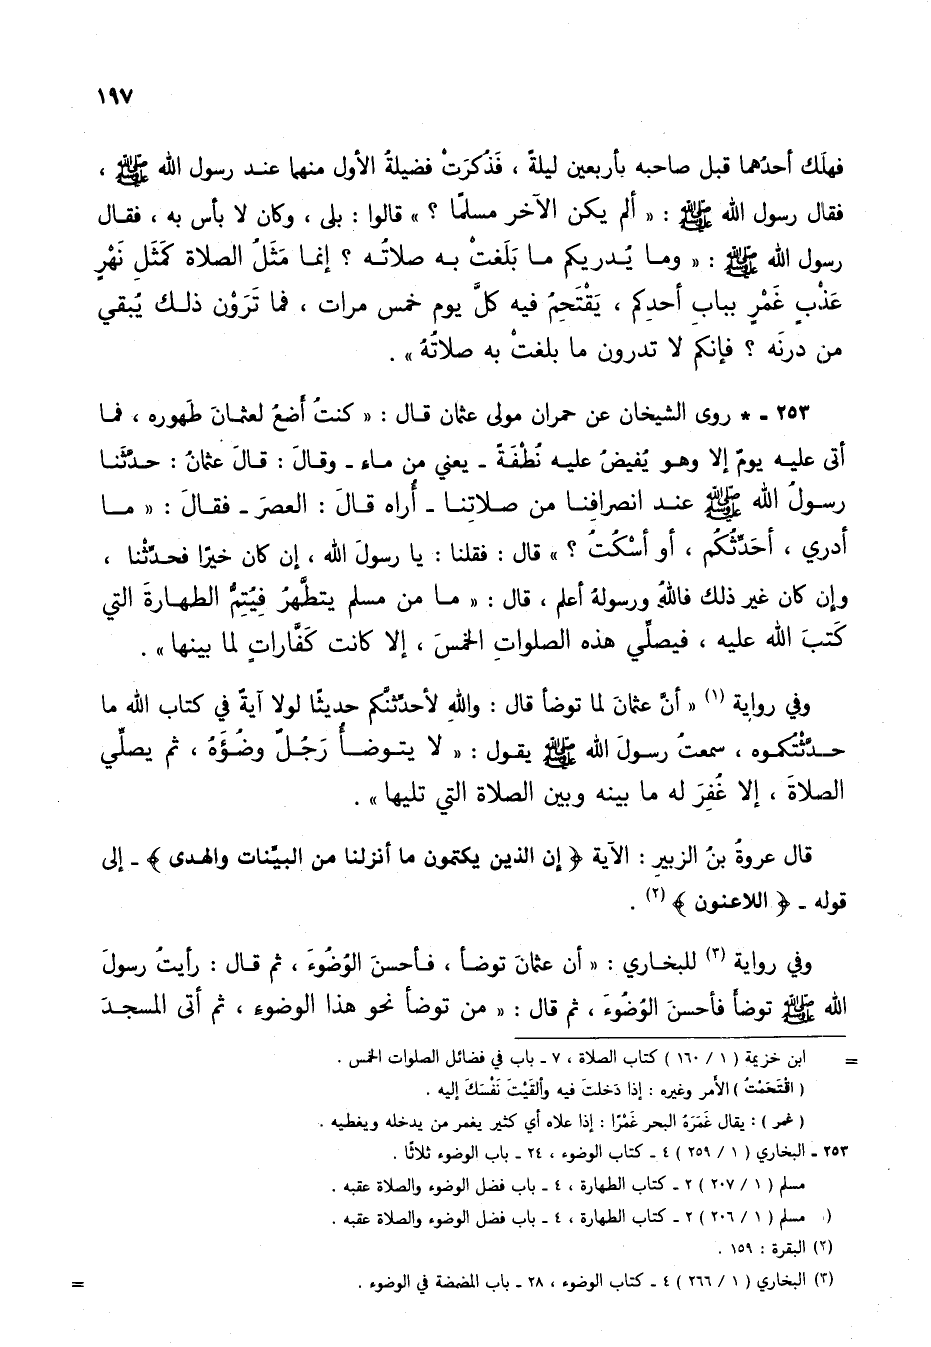 ١٩٧
فهلَك أحدُهما قبل صاحبه بأربعين ليلةً ، فَذُكرَتْ فضيلةُ الأول منهما عند رسول الله ﷺ ،
فقال رسول الله ﷺ : « ألم يكن الآخر مسلمًا ؟ » قالوا : بلى ، وكان لا بأس به ، فقال
رسول الله ﷺ : « وما يُدريكم ما بَلَغتْ به صلاتُه ؟ إنما مَثَلُ الصلاة كَمَثَلِ نَهْرٍ
عَذْبٍ غَمْرٍ ببابِ أحدِكم ، يَقْتَحِمُ فيه كلَّ يوم خمس مرات ، فما تَرَوْن ذلك يُبقي
من درنَه ؟ فإنكم لا تدرون ما بلغتْ به صلاتُهُ » .
٢٥٣ - * روى الشيخان عن حمران مولى عثمان قال : « كنتُ أَضعُ لعثمانَ طَهوره ، فما
أتى عليه يومٌ إلا وهو يُفيضُ عليه نُطْفَةً - يعني من ماء - وقالَ : قالَ عثمانُ : حدَّثَنا
رسولُ الله ﷺ عند انصرافِنا من صلاتِنا - أُراه قالَ : العصرَ - فقالَ : « ما
أدري ، أحَدِّثُكُم ، أو أسْكُتُ ؟ » قال : فقلنا : يا رسولَ الله ، إن كان خيرًا فحدثْنا ،
وإن كان غير ذلك فاللهُ ورسولهُ أعلم ، قال : « ما من مسلم يتطهَّرُ فيُتِمُّ الطهارةَ التي
كَتبَ الله عليه ، فيصلِّي هذه الصلواتِ الخمسَ ، إلا كانت كَفَّاراتٍ لما بينها » .
وفي رواية (١) « أنَّ عثمانَ لما توضأ قال : واللهِ لأحدِّثنَّكم حديثًا لولا آيةً في كتاب الله ما
حدَّثْتُكموه ، سمعتُ رسولَ الله ﷺ يقول : « لا يتوضأُ رَجُلٌ وضُؤَهُ ، ثم يصلِّي
الصلاةَ ، إلا غُفِرَ له ما بينه وبين الصلاة التي تليها » .
قال عروةُ بنُ الزبيرِ : الآية ﴿ إن الذين يكتمون ما أنزلنا من البيِّنات والهدى ﴾ - إلى
قوله - ﴿ اللاعنون ﴾ (٢) .
وفي رواية (٣) للبخاري : « أن عثمانَ توضأ ، فأحسنَ الوُضُوءَ ، ثم قال : رأيتُ رسولَ
الله ﷺ توضأَ فأحسنَ الوُضُوءَ ، ثم قال : « من توضأ نحو هذا الوضوء ، ثم أتى المسجدَ
= ابن خزيمة ( ١ / ١٦٠ ) كتاب الصلاة ، ٧ - باب في فضائل الصلوات الخمس .
( اقْتَحَمْتُ ) الأمر وغيره : إذا دَخلتَ فيه وألقَيْتَ نَفْسَكَ إليه .
( غمر ) : يقال غَمَرَهُ البحر غَمْرًا : إذا علاه أي كثير يغمر من يدخله ويغطيه .
٢٥٣ - البخاري ( ١ / ٢٥٩ ) ٤ - كتاب الوضوء ، ٢٤ - باب الوضوء ثلاثًا .
مسلم ( ١ / ٢٠٧ ) ٢ - كتاب الطهارة ، ٤ - باب فضل الوضوء والصلاة عقبه .
) مسلم ( ١ / ٢٠٦ ) ٢ - كتاب الطهارة ، ٤ - باب فضل الوضوء والصلاة عقبه .
(٢) البقرة : ١٥٩ .
(٣) البخاري ( ١ / ٢٦٦ ) ٤ - كتاب الوضوء ، ٢٨ - باب المضمضة في الوضوء . =